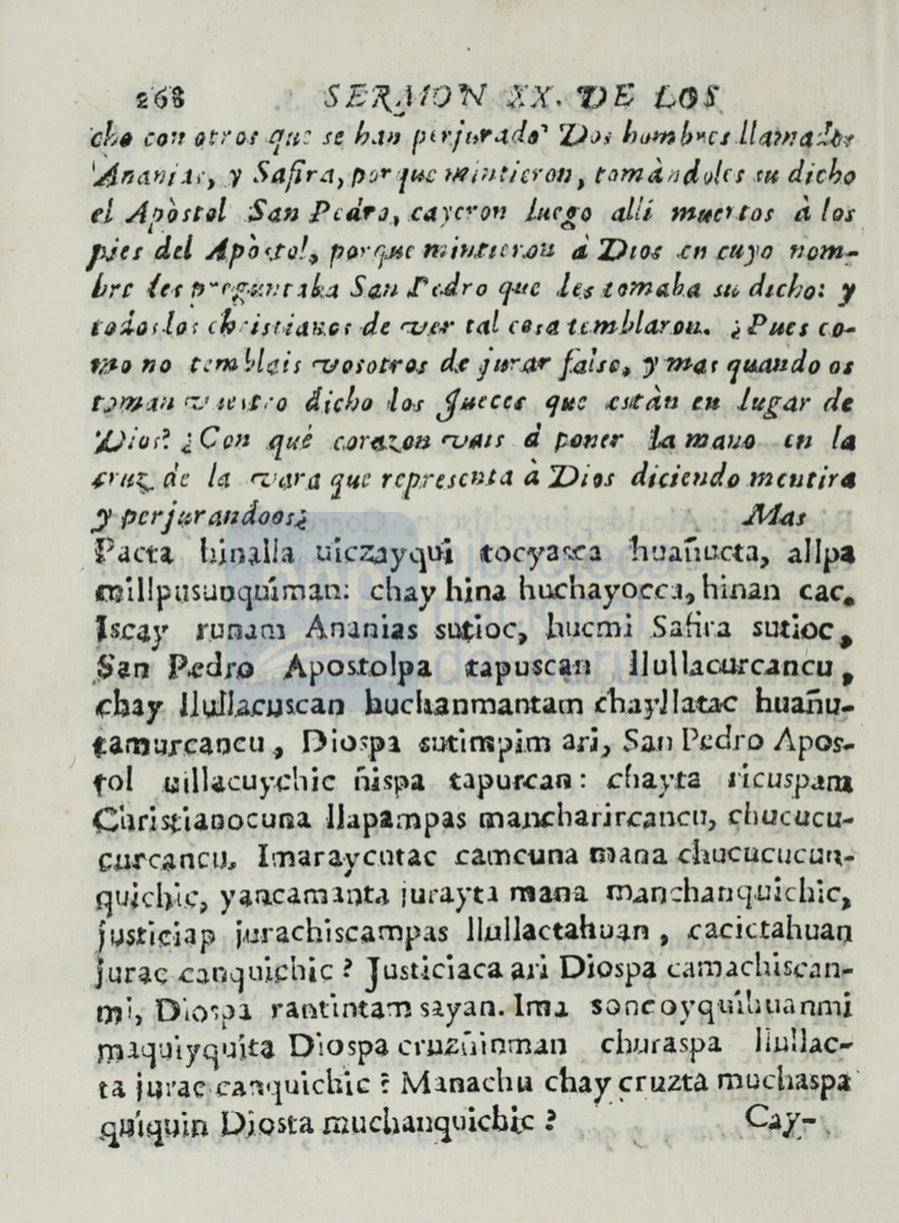 268 SERMON XX. DE LOS
cho con otros que se han perjurado? Dos hombres llamados
Ananias, y Safira, porque mintieron, tomàndoles su dicho
el Apòstol San Pedro, cayeron luego allí muertos à los
pies del Apòstol, porque mintieron à Dios en cuyo nom-
bre les preguntaba San Pedro que les tomaba su dicho: y
todos los christianos de ver tal cosa temblaron. ¿Pues co-
mo no temblais vosotros de jurar falso, y mas quando os
toman vuestro dicho los Jueces que estàn en lugar de
Dios? ¿Con què corazon vais à poner la mano en la
cruz de la vara que representa à Dios diciendo mentira
y perjurandoos¿ Mas
Pacta hinalla uiczayqui tocyasca huañucta, allpa
millpusunquiman: chay hina huchayocca, hinan cac.
Iscay runam Ananias sutioc, hucmi Safira sutioc,
San Pedro Apostolpa tapuscan llullacurcancu,
chay llullacuscan huchanmantam chayllatac huañu-
tamurcancu, Diospa sutimpim ari, San Pedro Apos-
tol uillacuychic ñispa tapurcan: chayta ricuspam
Christianocuna llapampas mancharircancu, chucucu-
curcancu. Imaraycutac camcuna mana chucucucun-
quichic, yancamanta jurayta mana manchanquichic,
justiciap jurachiscampas llullactahuan, cacictahuan
jurac canquichic? Justiciaca ari Diospa camachiscan-
mi, Diospa rantintam sayan. Ima soncoyquihuanmi
maquiyquita Diospa cruzñinman churaspa llullac-
ta jurac canquichic? Manachu chay cruzta muchaspa
quiquin Diosta muchanquichic? Cay-